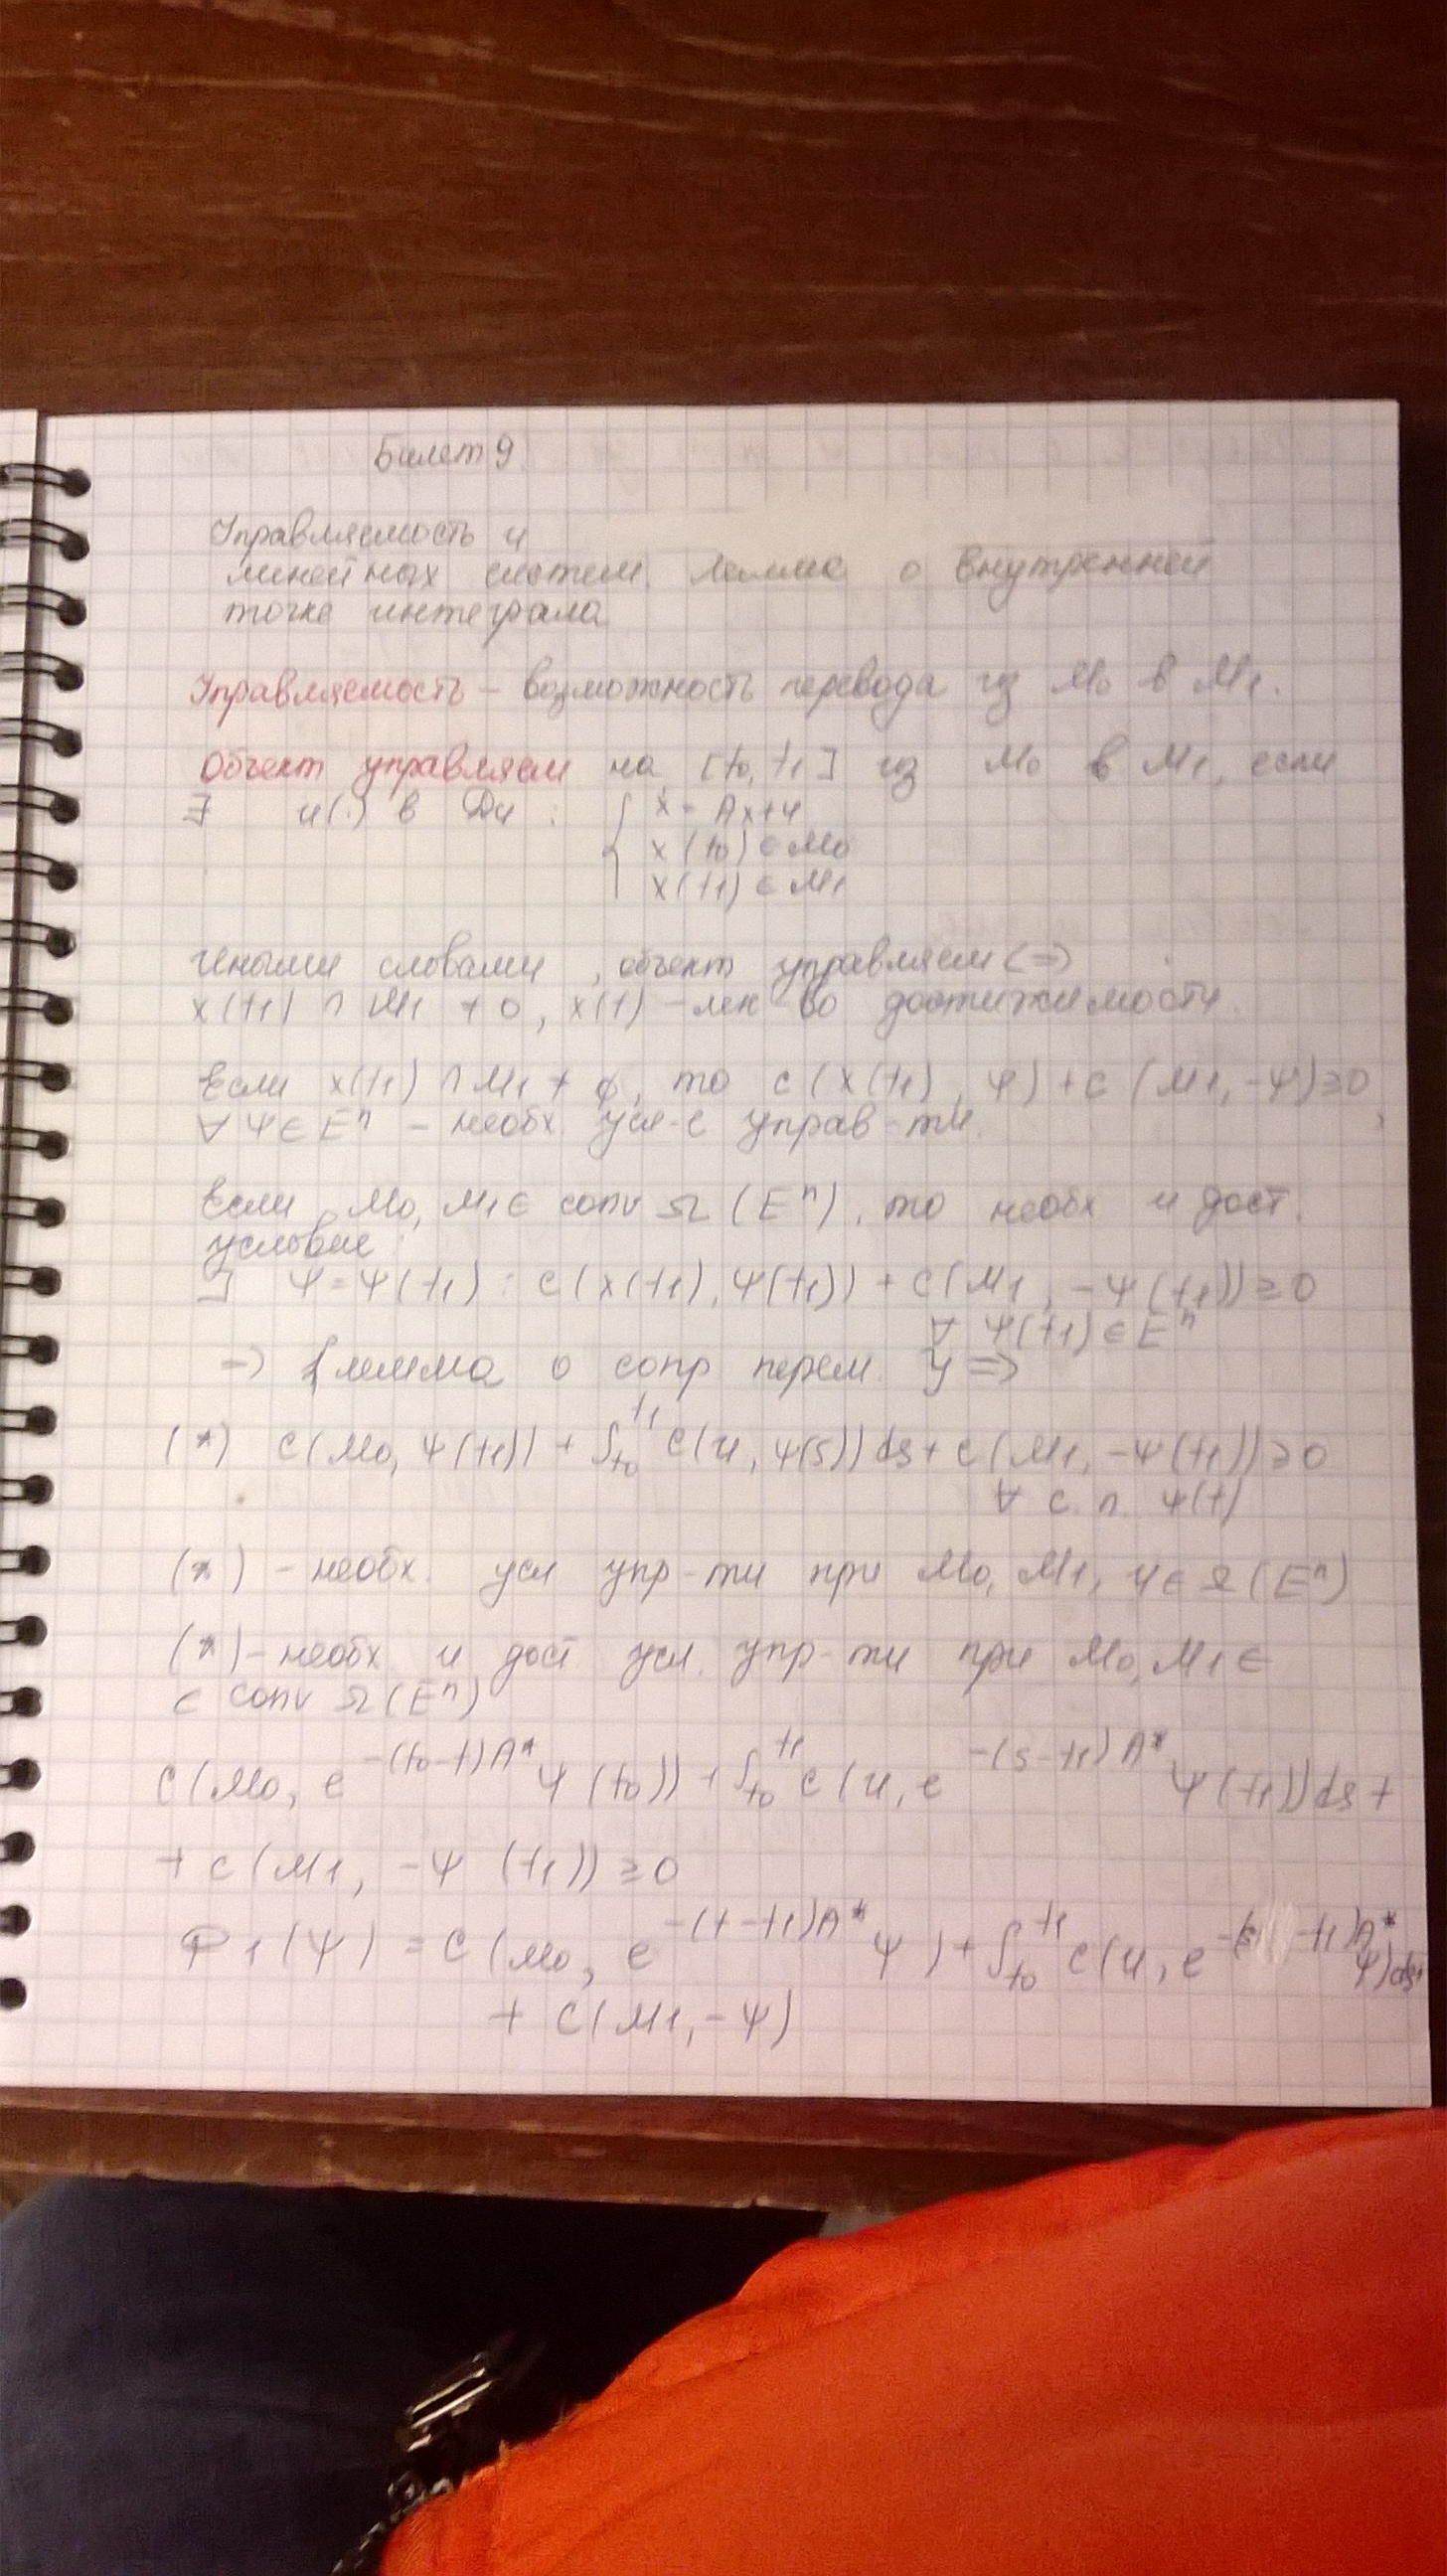 Билет 9
Управляемость и
линейных систем. Лемма о внутренней
точке интеграла
Управляемость – возможность перевода из M0 в M1.
Объект управляем на [t0, t1] из M0 в M1, если
∃ u(·) в Du : { ẋ = Ax+u
x(t0) ∈ M0
x(t1) ∈ M1
Иными словами, объект управляем <=>
X(t1) ∩ M1 ≠ 0, X(t) – мн-во достижимости.
Если X(t1) ∩ M1 ≠ ∅, то C(X(t1), Ψ) + C(M1, -Ψ) ≥ 0
∀ Ψ ∈ E^n – необх. усл-е управ-ти.
Если M0, M1 ∈ conv Ω(E^n), то необх и дост.
условие:
Ψ = Ψ(t1) : C(X(t1), Ψ(t1)) + C(M1, -Ψ(t1)) ≥ 0
∀ Ψ(t1) ∈ E^n
=> {лемма о сопр перем.} =>
(*) C(M0, Ψ(t1)) + ∫t0^t1 C(U, Ψ(s)) ds + C(M1, -Ψ(t1)) ≥ 0
∀ с.п. Ψ(t)
(*) – необх. усл упр-ти при M0, M1, U ∈ Ω(E^n)
(*) – необх и дост усл. упр-ти при M0, M1 ∈
∈ conv Ω(E^n)
C(M0, e^-(t0-t)A* Ψ(t0)) + ∫t0^t1 C(U, e^-(s-t1)A* Ψ(t1)) ds +
+ C(M1, -Ψ(t1)) ≥ 0
Φ1(Ψ) = C(M0, e^-(t-t1)A* Ψ) + ∫t0^t1 C(U, e^-(s-t1)A* Ψ) ds+
+ C(M1, -Ψ)